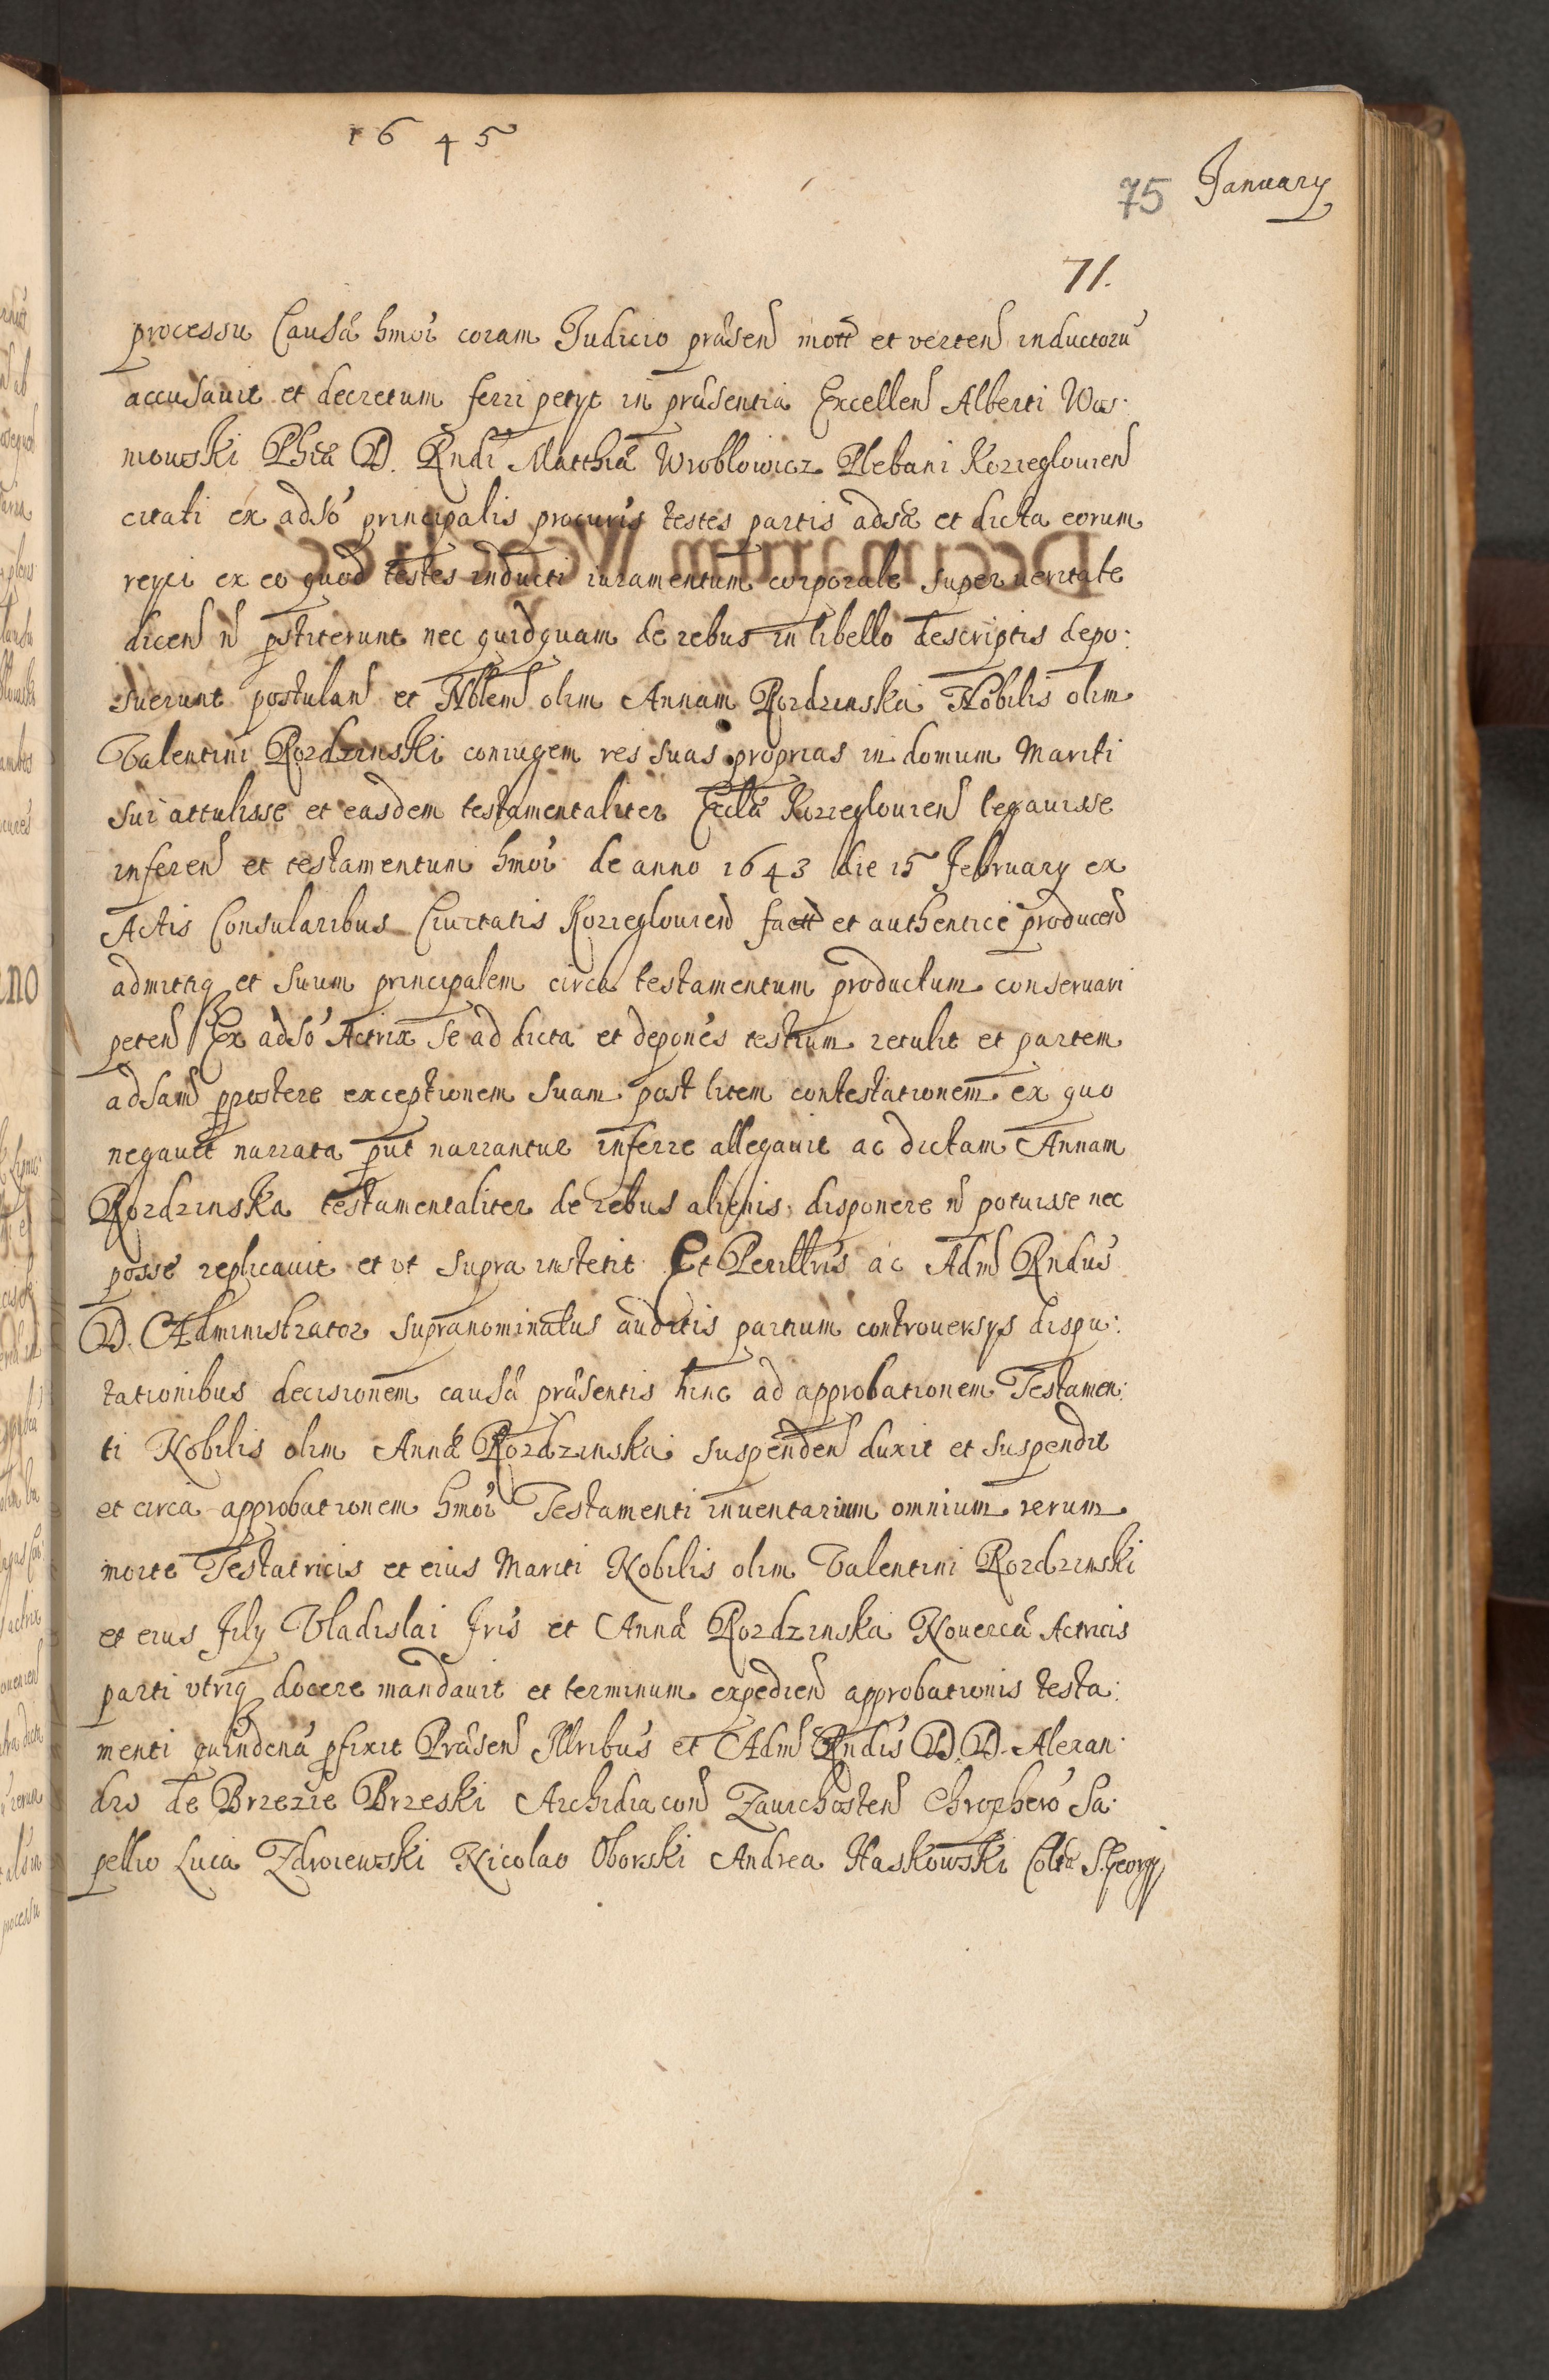 1645
75 January
71.
processu Causæ hmoi coram Judicio præsen mott et verten inductorũ
accusavit et decretum ferri petyt in præsentia Excellen Alberti Was:
mowski Phiæ D. Rndi Matthiæ Wroblowicz Plebani Kozieglovien
citati ex adso principalis procuris testes partis adsæ et dicta eorum
reyci ex eo quod testes inducti iuramentum corporale super veritate
dicen ñ pstiterunt nec quidquam de rebus in libello descriptis depo:
suerunt postulan et Nblem olim Annam Rozdzinska Nobilis olim
Valentini Rozdzinski coniugem res suas proprias in domum Mariti
sui attulisse et easdem testamentaliter Eccliæ Kozieglovien legavisse
inferen et testamentum hmoi de anno 1643 die 15 February ex
Actis Consularibus Civitatis Kozieglovien factt et authentice producen
admittiq et suum principalem circa testamentum productum conservari
peten Ex adso Actrix se ad dicta et depones testium retulit et partem
adsam ppostere exceptionem suam post litem contestationem ex quo
negavit narrata put narrantur inferre allegavit ac dictam Annam
Rozdzinska testamentaliter de rebus alienis disponere ñ potuisse nec
posse replicavit et vt supra institit Et Perillris ac Adm Rndus
D. Administrator supranominatus auditis partium controversys dispu:
tationibus decisionem causæ præsentis hinc ad approbationem Testamen:
ti Nobilis olim Annæ Rozdzinska suspenden duxit et suspendit
et circa approbationem hmoi Testamenti inventarium omnium rerum
morte Testatricis et eius Mariti Nobilis olim Valentini Rozdzinski
et eius Fily Vladislai Fris et Annæ Rozdzinska Novercæ Actricis
parti vtriq docere mandavit et terminum expedien approbationis testa:
menti quindenã pfixit Præsen Illribus et Adm Rndis D. D. Alexan:
dro de Brzezie Brzeski Archidiacon Zawichosten Chrophero Sa:
pellio Luca Zdroiewski Nicolao Oborski Andrea Haskowski Coltæ S. Georgy